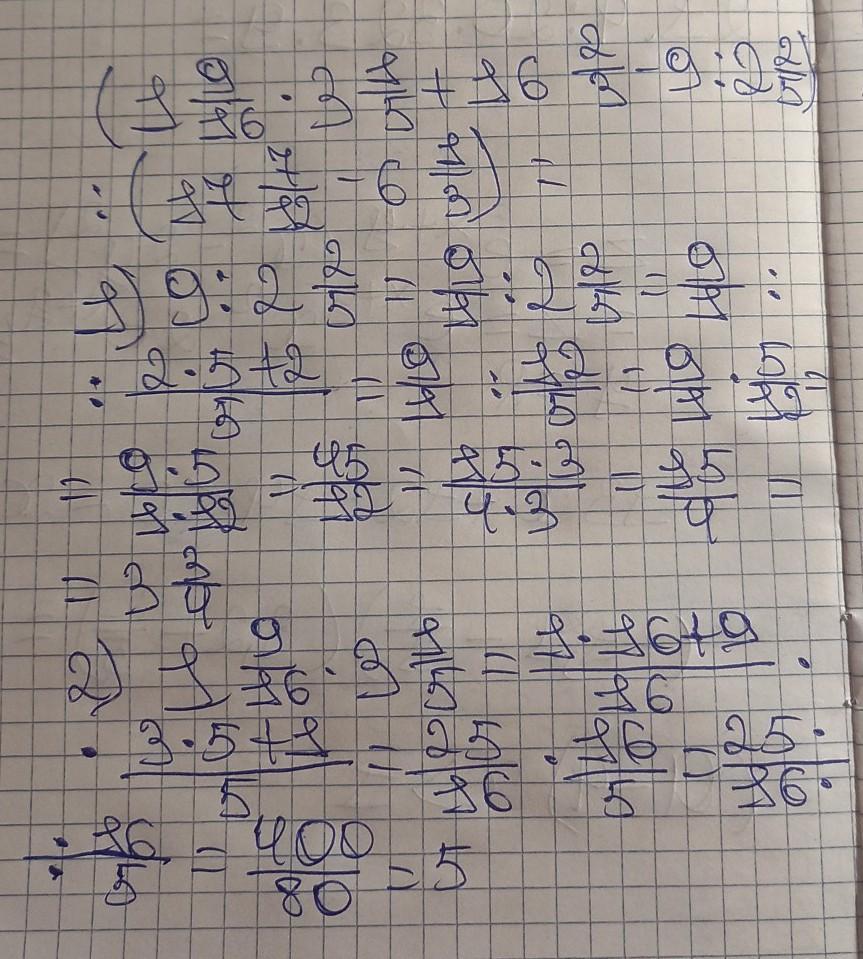 (1 9/16 · 3 1/5 + 16 2/3 - 9 : 2 2/5) :
: (17 7/12 - 6 1/3) =
1) 9 : 2 2/5 = 9/1 : 2 2/5 = 9/1 :
: (2·5+2)/5 = 9/1 : 12/5 = 9/1 · 5/12 =
= (9·5)/(1·12) = 45/12 = (15·3)/(4·3) = 15/4 =
= 3 3/4
2) 1 9/16 · 3 1/5 = (1·16+9)/16 ·
· (3·5+1)/5 = 25/16 · 16/5 = 25·/16·
·16/·5 = 400/80 = 5